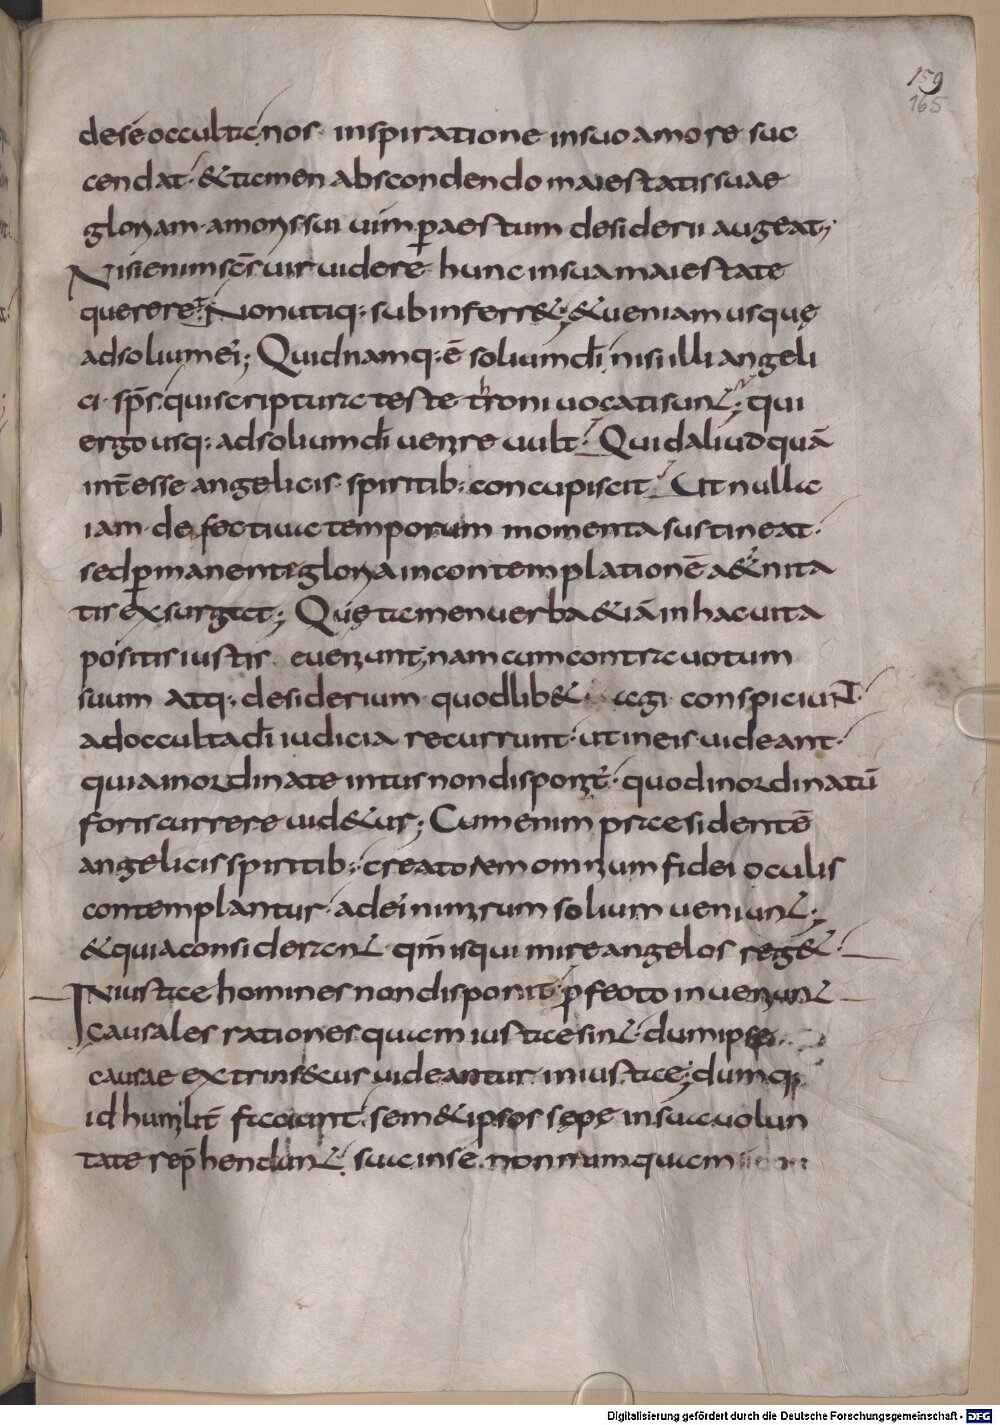 159
165
de se occulta nos · inspiratione in suo amore suc
cendat · & tamen abscondendo maiestatis suae
gloriam · amoris sui uim p̄ aestum desiderii augeat;
Nisi enim sc̄s uir uidere hunc in sua maiestate
quereret · Non utiq: subinferr&; & ueniam usquę
ad solium ei'; Quid namq: ē solium dī nisi illi angeli
ci sp̄s · qui scriptura teste throni uocati sunt; qui
ergo usq: ad solium dī uenire uult · Quid aliud quā
int̄ esse angelicis spiritib: concupiscit · Ut nulla
iam defectiua temporum momenta sustineat ·
sed p̄manentę gloria in contemplationē a&ernita
tis exsurgat; Quę tamen uerba &iā in hac uita
positis iustis eueniunt, nam cum contra uotum
suum atq: desiderium quodlib& agi conspiciunt ·
ad occulta dī iudicia recurrunt · ut in eis uideant ·
quia inordinate intus non disponit᷑ · quod inordinatū
foris currere uid&ur; Cum enim praesidentē
angelicis spiritib: creatorem omnium fidei oculis
contemplantur · ad ei' nimirum solium ueniunt;
& quia considerant · qm̄ is qui mire angelos reg& ·
Niustae homines non disponit · p̄fecto inueniunt
causales rationes quam iustae sint · dum ipse
causae extrins&us uideantur iniustae; dumq;
id humilit̄ faciunt · sem&ipsos sępę in sua uolun
tate rep̄hendunt · sua in se nonnumquam
Digitalisierung gefördert durch die Deutsche Forschungsgemeinschaft - DFG